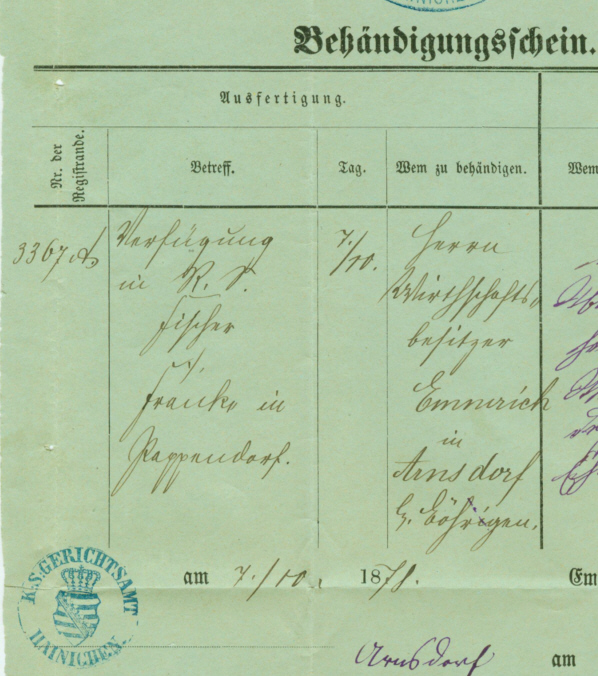 Behändigungsschein.
Ausfertigung.
Nr. der Registrande.
Betreff.
Tag.
Wem zu behändigen.
Wem
3367
Verfügung
in R. S.
Fischer
./.
Franke in
Pappendorf.
7./10.
Herrn
Wirthschafts-
besitzer
Emmrich
in
Arnsdorf
b. Böhrigen.
am 7./10. 1878.
Em
K.S.GERICHTSAMT
HAINICHEN.
Arnsdorf am